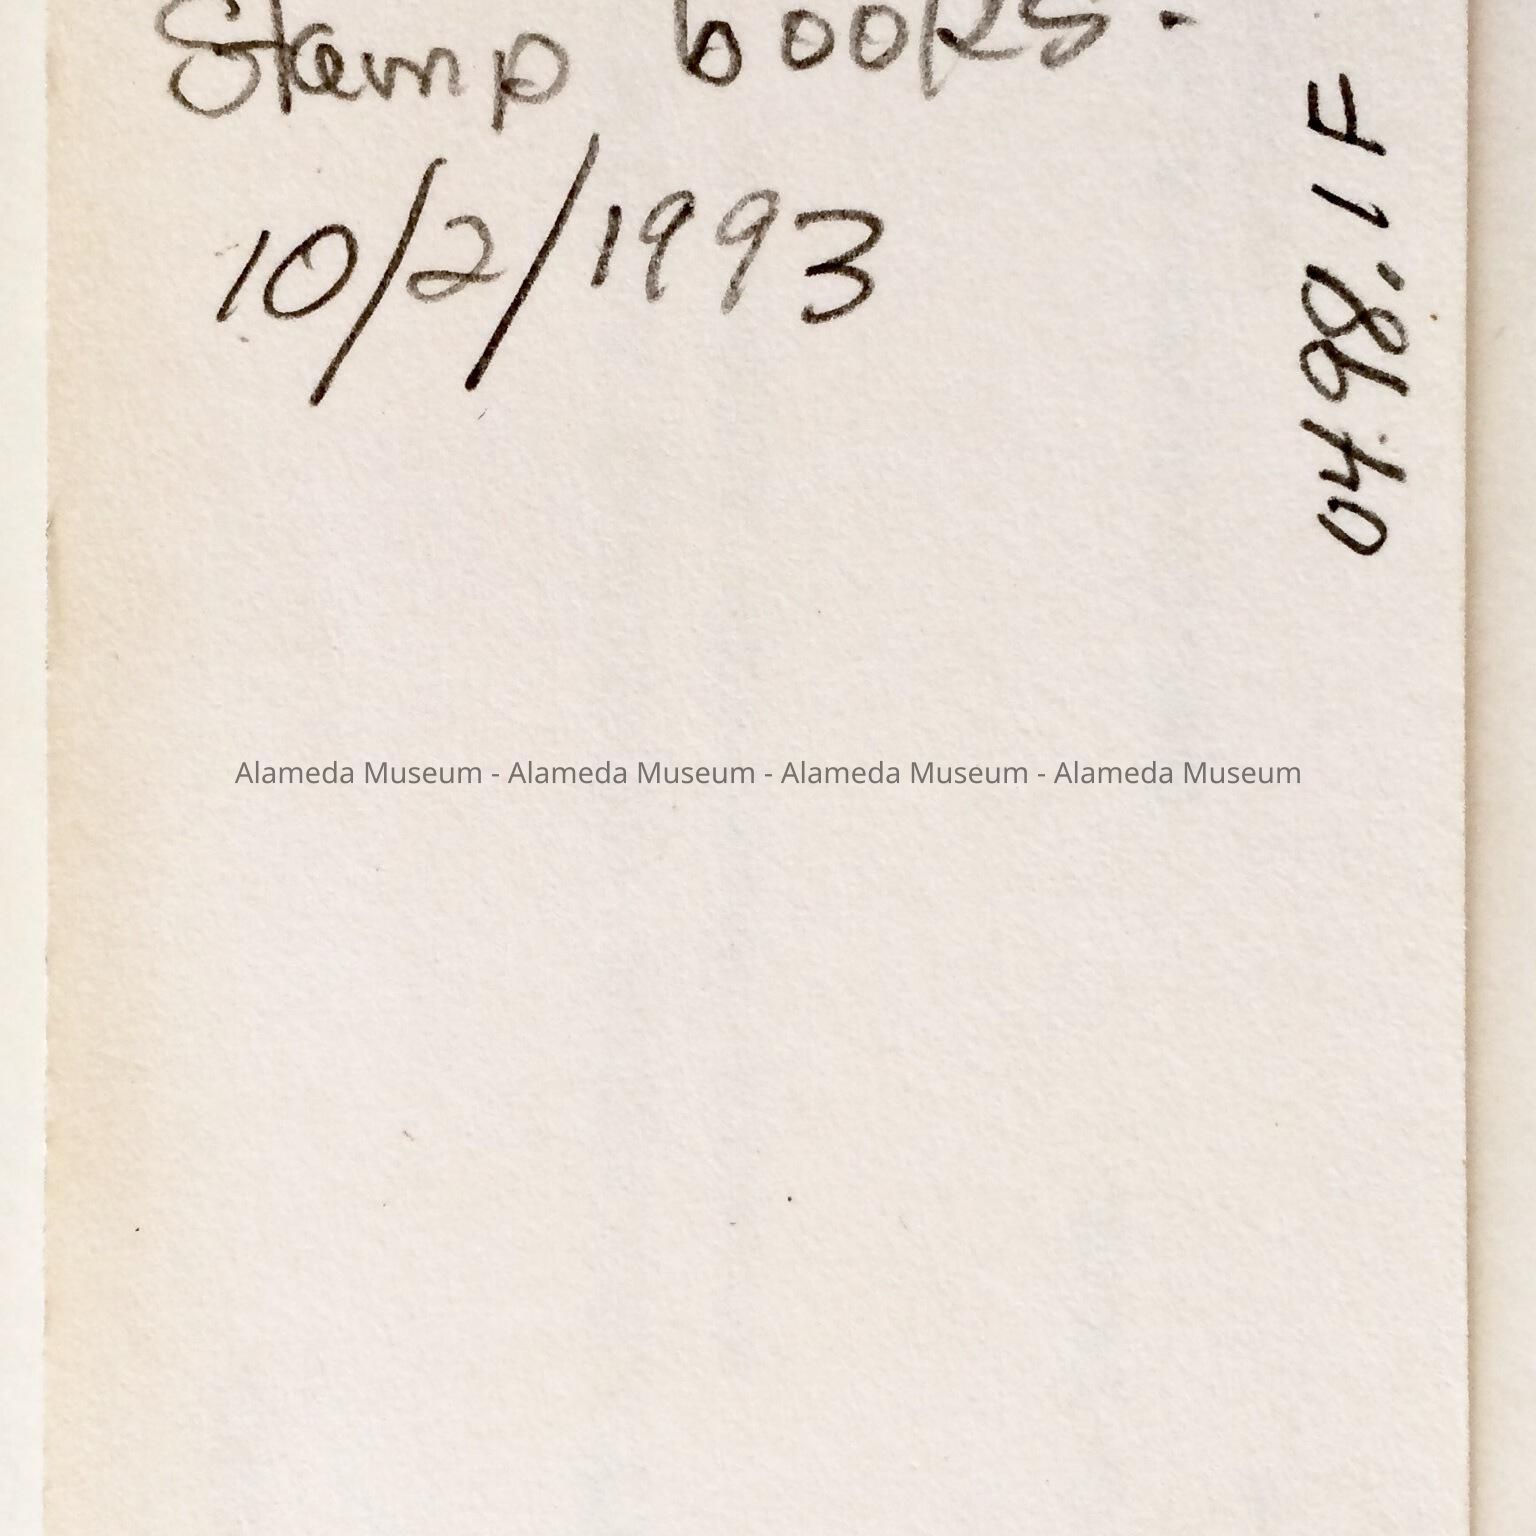 Stamp books.
10/2/1993
0498.1F
Alameda Museum - Alameda Museum - Alameda Museum - Alameda Museum